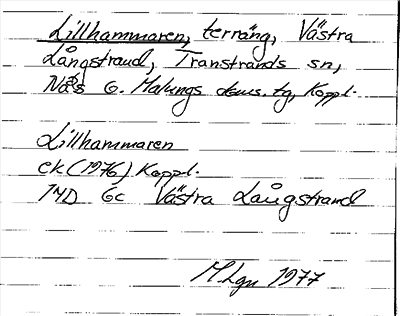 Lillhammaren, terräng, Västra
Långstrand, Transtrands sn,
Nås o. Malungs doms. tg, Koppl.
Lillhammaren
ek (1976) Koppl.
14D 6c Västra Långstrand
M.Lgn 1977